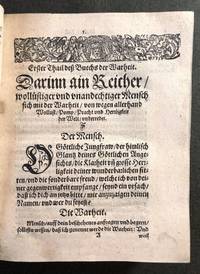 Erster Theil deß Buchs der Warheit.
Darinn ain Reicher/
wollüstiger vnd vnandechtiger Mensch
sich mit der Warheit / von wegen allerhand
Wollust / Pomp / Pracht vnd Herrligkeit
der Welt / vnderredet.
Der Mensch.
Göttliche Jungfraw / der himlisch
Glantz deines Göttlichen An-
gesichts / die Klarheit vnd grosse Herr-
ligkeit deiner wunderbarlichen klei-
der / vnd die sonderbare frewd / welch ich von dei-
ner gegenwertigkait empfange / seynd ein vrsach /
daß ich dich anzusprechen / mir anzuzaigen deinen
Namen / vnd wer du seyest.
Die Warheit.
Mensch / auff dein beschehenes anfragen vnd begern /
solst wissen / daß ich genennet werde die Warheit: Vnd
A
weil